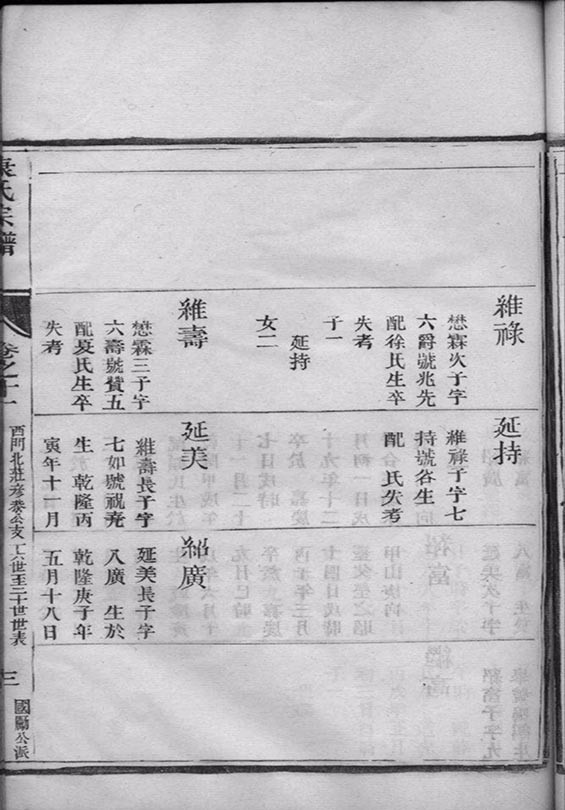 維祿
懋霖次子字
六爵號兆先
配徐氏生卒
失考
子一
延持
女二
維壽
懋霖三子字
六壽號贊五
配夏氏生卒
失考
延持
維祿子字七
持號谷生
配 氏失考
延美
維壽長子字
七如號視堯
生 乾隆丙
寅年十一月
紹廣
延美長子字
八廣 生於
乾隆庚子年
五月十八日
袁氏宗譜
卷之十一
西門北莊彦
公支
六世至二十世世表
三
國勳公派